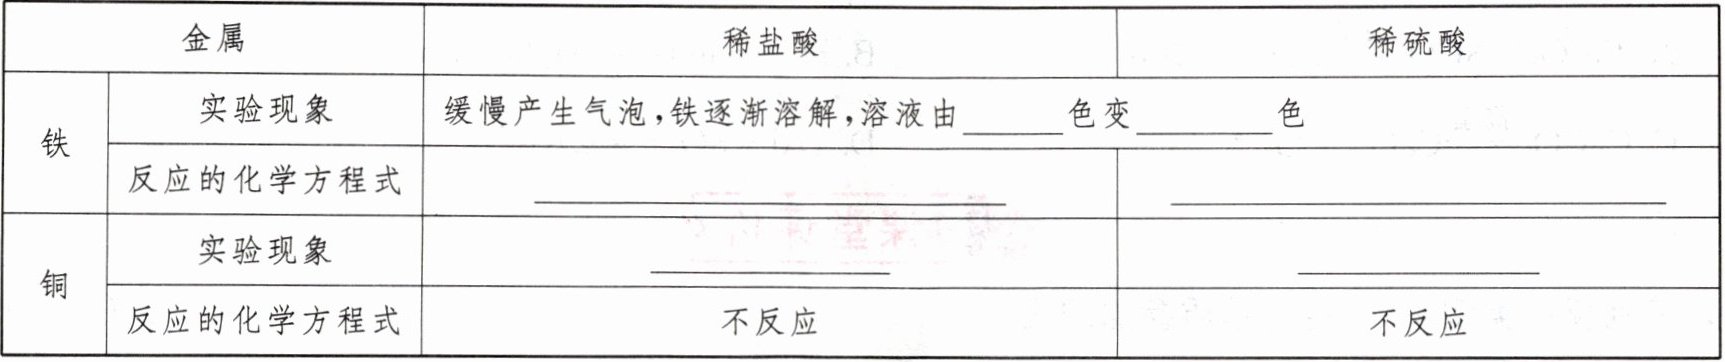 金属 稀盐酸 稀硫酸
铁 实验现象 缓慢产生气泡,铁逐渐溶解,溶液由______色变________色
反应的化学方程式 ____________ ____________
铜 实验现象 ____________ ____________
反应的化学方程式 不反应 不反应